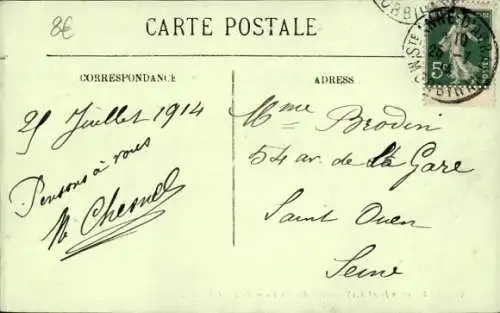 8€
CARTE POSTALE
CORRESPONDANCE
ADRESSE
25 Juillet 1914
Pensons à vous
Chesnel
Mme Brodin
54 av. de la Gare
Saint Ouen
Seine
STE ANNE D'
10
26
5c